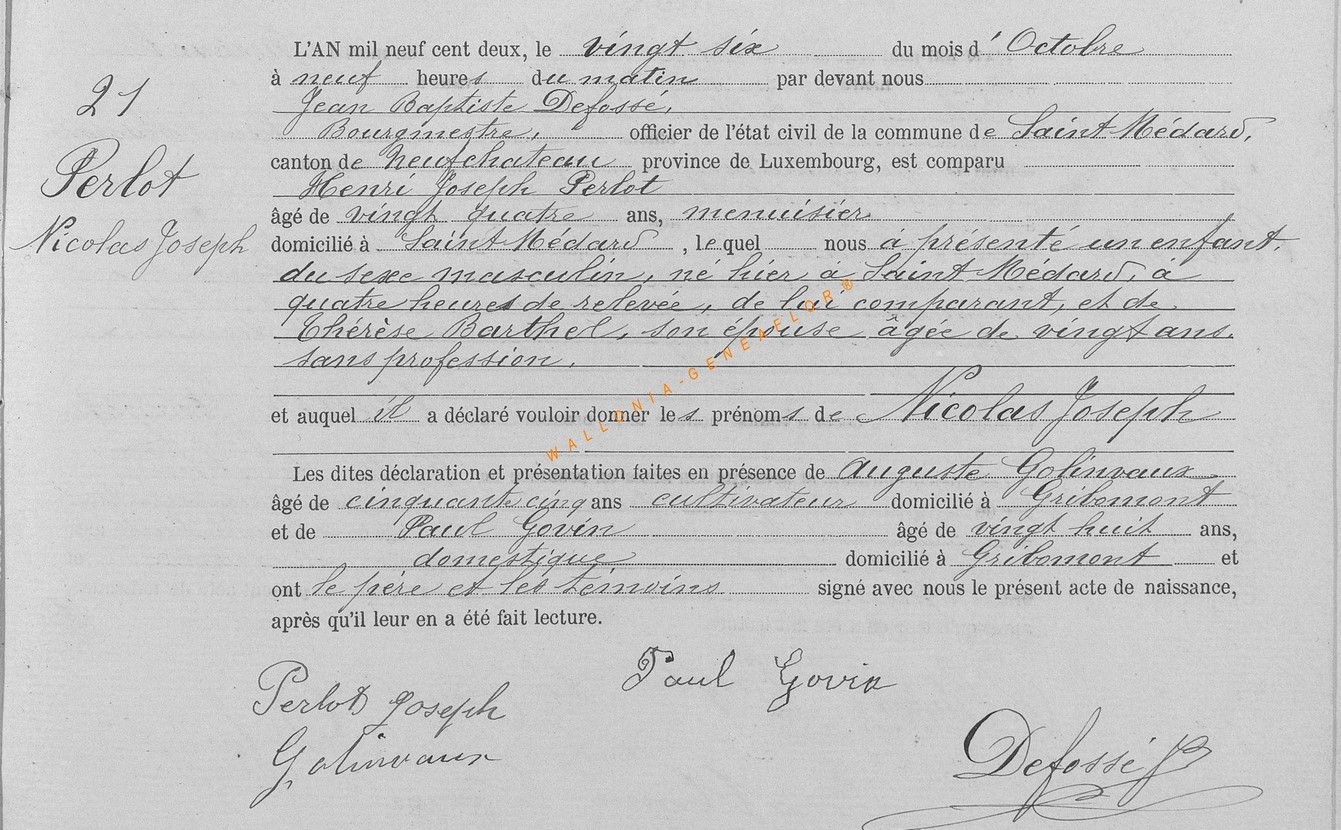 21
Perlot
Nicolas Joseph
L'AN mil neuf cent deux, le vingt six du mois d'Octobre
à neuf heures du matin par devant nous
Jean Baptiste Defossé,
Bourgmestre, officier de l'état civil de la commune de Saint Médard,
canton de Neufchateau province de Luxembourg, est comparu
Henri Joseph Perlot
âgé de vingt quatre ans, menuisier
domicilié à Saint Médard, lequel nous a présenté un enfant.
du sexe masculin, né hier à Saint Médard, à
quatre heures de relevée, de lui comparant, et de
Thérèse Barthel, son épouse âgée de vingt ans.
sans profession.
et auquel il a déclaré vouloir donner les prénoms de Nicolas Joseph
Les dites déclaration et présentation faites en présence de Auguste Golinvaux
âgé de cinquante cinq ans cultivateur domicilié à Gribomont
et de Paul Govin âgé de vingt huit ans,
domestique domicilié à Gribomont et
ont le père et les témoins signé avec nous le présent acte de naissance,
après qu'il leur en a été fait lecture.
Perlot Joseph
Paul Govin
Golinvaux
Defossé JB
WALLONIA-GENEAFLOR®